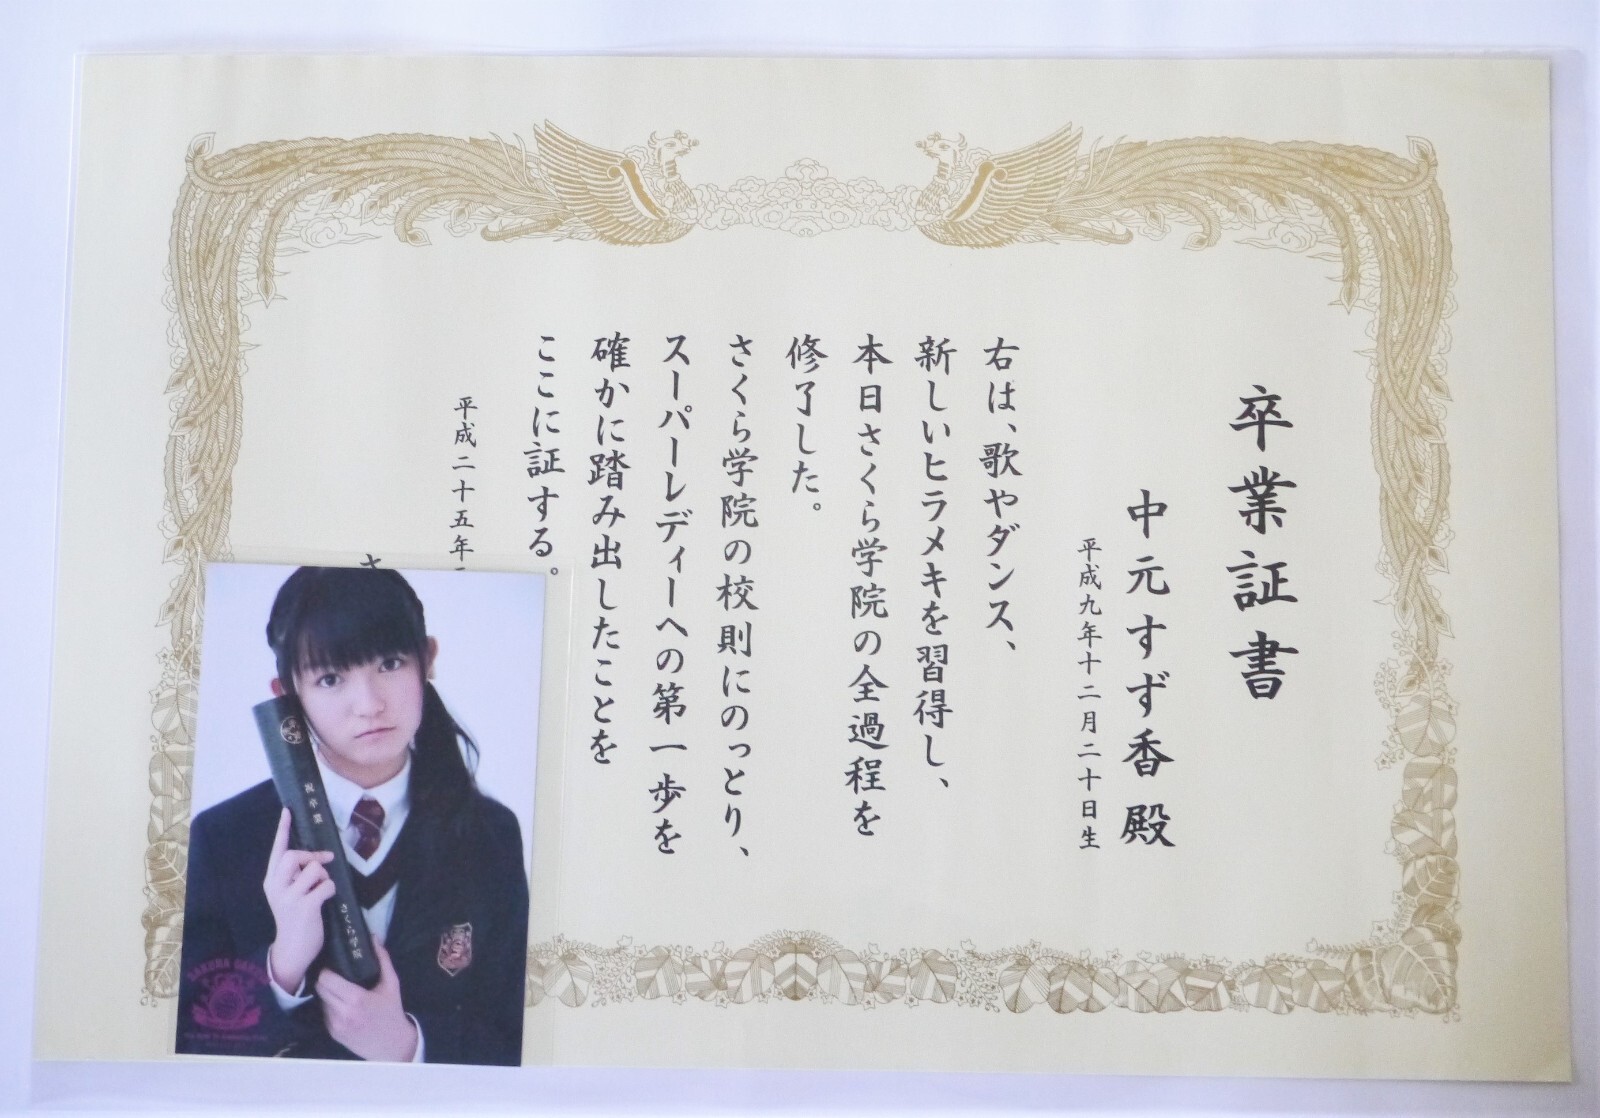 卒業証書
中元すず香殿
平成九年十二月二十日生
右は、歌やダンス、
新しいヒラメキを習得し、
本日さくら学院の全過程を
修了した。
さくら学院の校則にのっとり、
スーパーレディーへの第一歩を
確かに踏み出したことを
ここに証する。
平成二十五年
さ
祝卒業
さくら学院
SAKURA GAKUIN